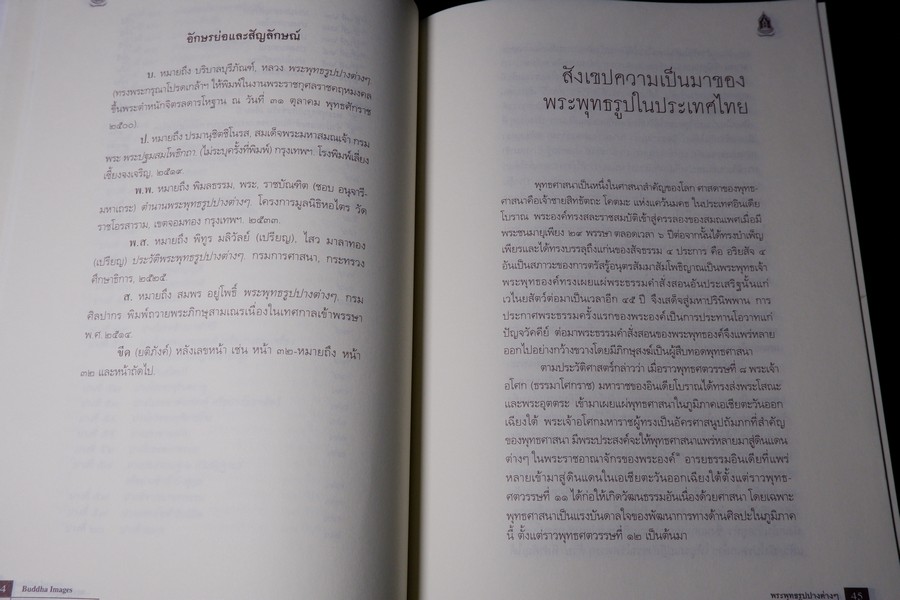 อักษรย่อและสัญลักษณ์
บ. หมายถึง บริบาลบุรีภัณฑ์, หลวง พระพุทธรูปปางต่างๆ
(ทรงพระกรุณาโปรดเกล้าฯ ให้พิมพ์ในงานพระราชกุศลราชคฤหมงคล
ขึ้นพระตำหนักจิตรลดารโหฐาน ณ วันที่ ๓๑ ตุลาคม พุทธศักราช
๒๕๐๐).
ป. หมายถึง ปรมานุชิตชิโนรส, สมเด็จพระมหาสมณเจ้า กรม
พระ พระปฐมสมโพธิกถา (ไม่ระบุครั้งที่พิมพ์) กรุงเทพฯ โรงพิมพ์เลี่ยง
เซี้ยงจงเจริญ, ๒๕๑๙.
พ.พ. หมายถึง พิมลธรรม, พระ, ราชบัณฑิต (ชอบ อนุจารี-
มหาเถระ) ตำนานพระพุทธรูปปางต่างๆ. โครงการมูลนิธิหอไตร วัด
ราชโอรสาราม, เขตจอมทอง กรุงเทพฯ. ๒๕๓๓.
พ.ส. หมายถึง พิทูร มลิวัลย์ (เปรียญ), ไสว มาลาทอง
(เปรียญ) ประวัติพระพุทธรูปปางต่างๆ. กรมการศาสนา, กระทรวง
ศึกษาธิการ, ๒๕๒๕
ส. หมายถึง สมพร อยู่โพธิ์ พระพุทธรูปปางต่างๆ. กรม
ศิลปากร พิมพ์ถวายพระภิกษุสามเณรเนื่องในเทศกาลเข้าพรรษา
พ.ศ. ๒๕๑๔.
ขีด (ยติภังค์) หลังเลขหน้า เช่น หน้า ๓๒-หมายถึง หน้า
๓๒ และหน้าถัดไป.
4 Buddha Images
สังเขปความเป็นมาของ
พระพุทธรูปในประเทศไทย
พุทธศาสนาเป็นหนึ่งในศาสนาสำคัญของโลก ศาสดาของพุทธ-
ศาสนาคือเจ้าชายสิทธัตถะ โคตมะ แห่งแคว้นมคธ ในประเทศอินเดีย
โบราณ พระองค์ทรงสละราชสมบัติเข้าสู่ครรลองของสมณเพศเมื่อมี
พระชนมายุเพียง ๒๙ พรรษา ตลอดเวลา ๖ ปีต่อจากนั้นได้ทรงบำเพ็ญ
เพียรและได้ทรงบรรลุถึงแก่นของสัจธรรม ๔ ประการ คือ อริยสัจ ๔
อันเป็นสภาวะของการตรัสรู้อนุตรสัมมาสัมโพธิญาณเป็นพระพุทธเจ้า
พระพุทธองค์ทรงเผยแผ่พระธรรมคำสั่งสอนอันประเสริฐนั้นแก่
เวไนยสัตว์ต่อมาเป็นเวลาอีก ๔๕ ปี จึงเสด็จสู่มหาปรินิพพาน การ
ประกาศพระธรรมครั้งแรกของพระองค์เป็นการประทานโอวาทแก่
ปัญจวัคคีย์ ต่อมาพระธรรมคำสั่งสอนของพระพุทธองค์จึงแพร่หลาย
ออกไปอย่างกว้างขวางโดยมีภิกษุสงฆ์เป็นผู้สืบทอดพุทธศาสนา
ตามประวัติศาสตร์กล่าวว่า เมื่อราวพุทธศตวรรษที่ ๘ พระเจ้า
อโศก (ธรรมาโศกราช) มหาราชของอินเดียโบราณได้ทรงส่งพระโสณะ
และพระอุตตระ เข้ามาเผยแผ่พุทธศาสนาในภูมิภาคเอเชียตะวันออก
เฉียงใต้ พระเจ้าอโศกมหาราชผู้ทรงเป็นอัครศาสนูปถัมภกที่สำคัญ
ของพุทธศาสนา มีพระประสงค์จะให้พุทธศาสนาแพร่หลายมาสู่ดินแดน
ต่างๆ ในพระราชอาณาจักรของพระองค์ อารยธรรมอินเดียที่แพร่
หลายเข้ามาสู่ดินแดนในเอเชียตะวันออกเฉียงใต้ตั้งแต่ราวพุทธ-
ศตวรรษที่ ๑๑ ได้ก่อให้เกิดวัฒนธรรมอันเนื่องด้วยศาสนา โดยเฉพาะ
พุทธศาสนาเป็นแรงบันดาลใจของพัฒนาการทางด้านศิลปะในภูมิภาค
นี้ ตั้งแต่ราวพุทธศตวรรษที่ ๑๒ เป็นต้นมา
พระพุทธรูปปางต่างๆ 45